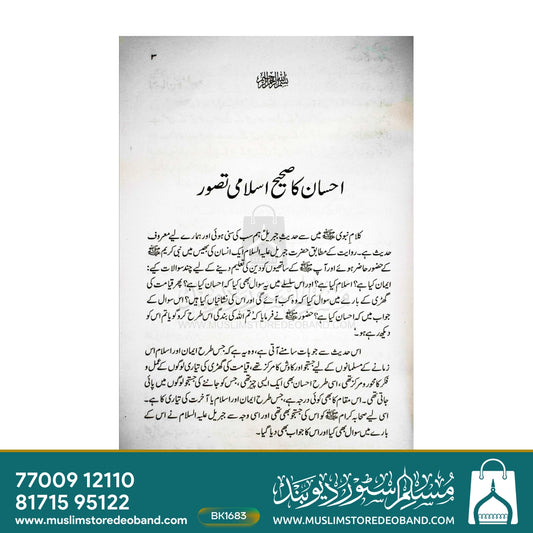 ۳
بسم اللہ الرحمن الرحیم
احسان کا صحیح اسلامی تصور
کلام نبوی ﷺ میں سے حدیث جبریل ہم سب کی سنی ہوئی اور ہمارے لیے معروف
حدیث ہے۔ روایت کے مطابق حضرت جبریل علیہ السلام ایک انسان کی بھیس میں نبی کریم ﷺ
کے حضور حاضر ہوئے اور آپ ﷺ کے ساتھیوں کو دین کی تعلیم دینے کے لیے چند سوالات کیے:
ایمان کیا ہے؟ اسلام کیا ہے؟ اور اس سلسلے میں یہ سوال بھی کیا کہ احسان کیا ہے؟ پھر قیامت کی
گھڑی کے بارے میں سوال کیا کہ وہ کب آئے گی اور اس کی نشانیاں کیا ہیں؟ اس سوال کے
جواب میں کہ احسان کیا ہے؟ حضور ﷺ نے فرمایا کہ 'تم اللہ کی بندگی اس طرح کرو گویا تم اس کو
دیکھ رہے ہو۔'
اس حدیث سے جو بات سامنے آتی ہے، وہ یہ ہے کہ جس طرح ایمان اور اسلام اس
زمانے کے مسلمانوں کے لیے جستجو اور کاوش کا مرکز تھے، قیامت کی گھڑی کی تیاری لوگوں کے عمل و
فکر کا محور و مرکز تھی، اسی طرح احسان بھی ایک ایسی چیز تھی، جس کو جاننے کی جستجو لوگوں میں پائی
جاتی تھی۔ اس مقام کا بھی کوئی درجہ ہے، جس طرح ایمان اور اسلام یا آخرت کی تیاری کا ہے۔
اسی لیے صحابہ کرام ؓ کو اس کی جستجو بھی تھی اور اسی وجہ سے جبریل علیہ السلام نے اس کے
بارے میں سوال بھی کیا اور اس کا جواب بھی دیا گیا۔
WWW.MUSLIMSTOREDEOBAND.COM
77009 12110
81715 95122
www.muslimstoredeoband.com
BK1683
مسلم اسٹور دیوبند
WWW.MUSLIMSTOREDEOBAND.COM